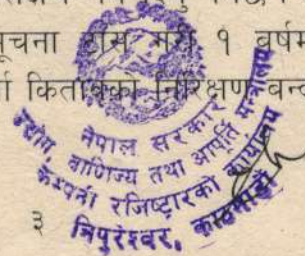 सूचना टाँस गरी १ वर्षम
किताबको निरिक्षण बन्द
नेपाल सरकार
उद्योग, वाणिज्य तथा आपूर्ति मन्त्रालय
कम्पनी रजिष्ट्रारको कार्यालय
त्रिपुरेश्वर, काठमाडौं
३